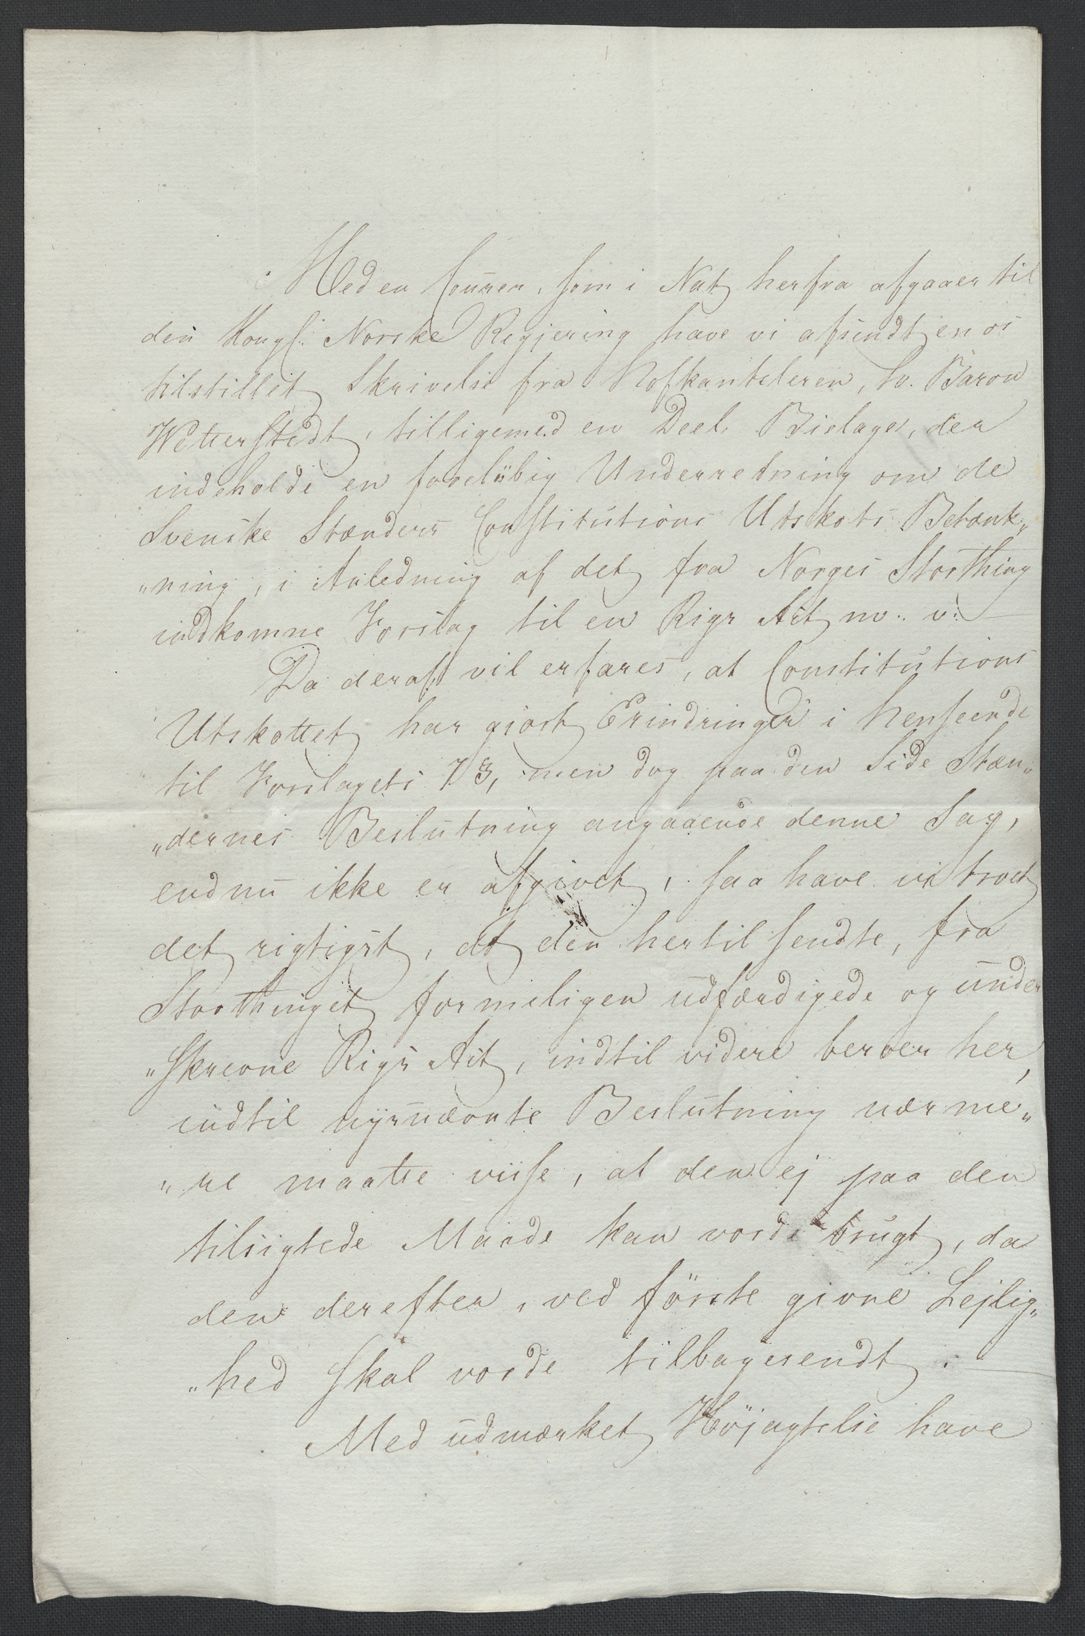 Med en Courer, som i Nat herfra afgaaer til
den Kongl: Norske Regjering have vi afsendt en os
tilstillet Skrivelse fra Hofkantsleren, Hr. Baron
Wetterstedt, tilligemed en Deel Bielager, der
indeholde en foreløbig Underretning om de
Svenske Stænders Constitutions Utskots Betænk„
„ning, i Anledning af det fra Norges Storthing
indkomne Forslag til en Rigs Act m. v:
Da deraf vil erfares, at Constitutions
Utskottet har giort Erindringer i Henseende
til Forslagets 7 §, men dog paa den Side Stæn„
„dernes Beslutning angaaende denne Sag,
endnu ikke er afgivet, saa have vi troet
det rigtigst, at den hertil sendte, fra
Storthinget formeligen udfærdigede og under
„skrevne Rigs Act, indtil videre beroer her,
indtil nysnævnte Beslutning nærme„
„re maatte viise, at den ej paa den
tilsigtede Maade kan vorde brugt, da
den derefter, ved første givne Lejlig„
„hed skal vorde tilbagesendt.
Med udmærket Høj agtelse have